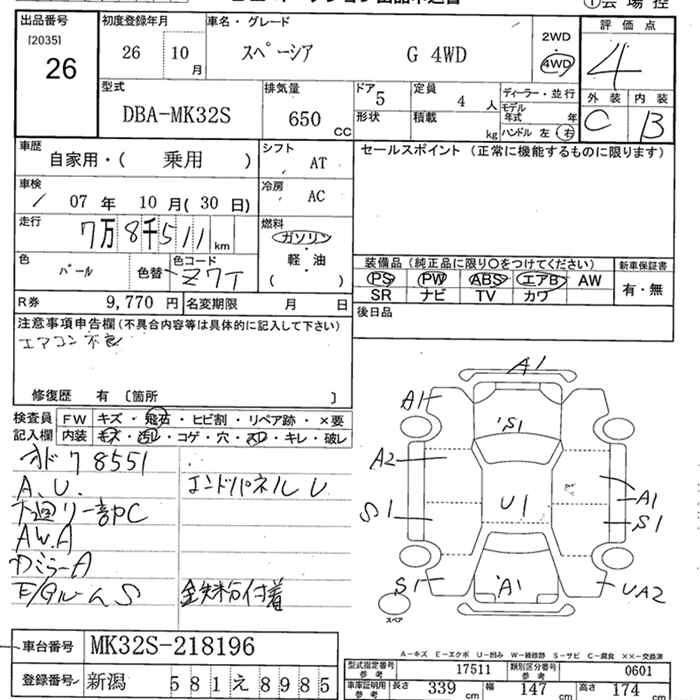 出品番号 初度登録年月 車名・グレード 評価点
[2035]
26 26 10月 スペーシア G 4WD 2WD 4WD 4
型式 排気量 ドア 定員 ディーラー・並行 外装 内装
DBA-MK32S 650CC 5 4人 モデル年式 年 C B
形状 積載 kg ハンドル 左 右
車歴 自家用・( 乗用 ) シフト AT セールスポイント (正常に機能するものに限ります)
車検 07年 10月(30日) 冷房 AC
走行 7万8千511km 燃料 ガソリン・軽・油 ( )
色 パール 色替 色コード Z7T 装備品 (純正品に限り○をつけてください) 新車保証書
PS PW ABS エアB AW 有・無
R券 9,770円 名変期限 月 日 SR ナビ TV カワ
注意事項申告欄(不具合内容等は具体的に記入して下さい) 後日品
エアコン不良
修復歴 有 〔箇所 〕
検査員 FW キズ・飛石・ヒビ割・リペア跡・×要
記入欄 内装 キズ・汚れ・コゲ・穴・スレ・キレ・破レ
オド78551
A.U. エンドパネルU
下廻り一部PC
AW.A
DミラーA
F/タルーム S 鉄粉付着
A1
A1
S1
A2
U1
A1
S1
S1
S1
A1
UA2
スペア
A-キズ E-エクボ U-凹み W-補修跡 S-サビ C-腐食 ××-交換済
車台番号 MK32S-218196
登録番号 新潟 581え8985
型式指定番号 参考 17511 類別区分番号 参考 0601
車庫証明用 参考 長さ 339cm 幅 147cm 高さ 174cm